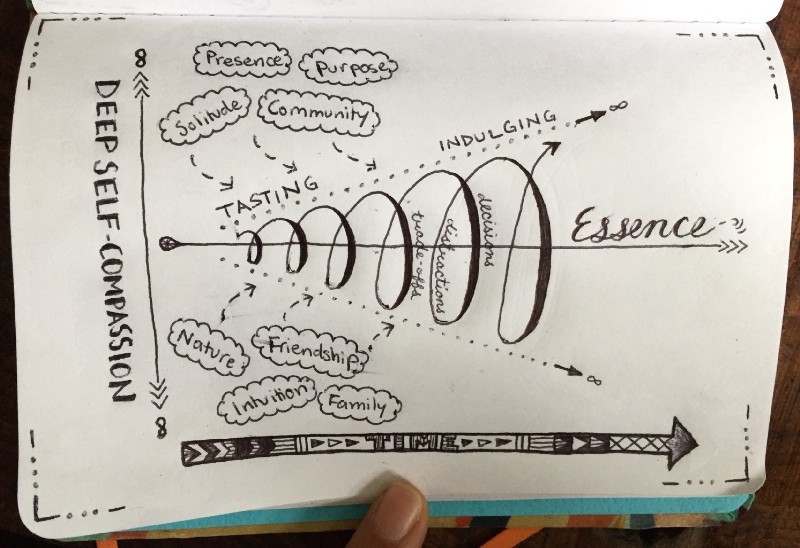 Presence
Purpose
Solitude
Community
INDULGING
∞
TASTING
DEEP SELF-COMPASSION
∞
∞
trade-offs
distractions
decisions
Essence
Nature
Friendship
Intuition
Family
∞